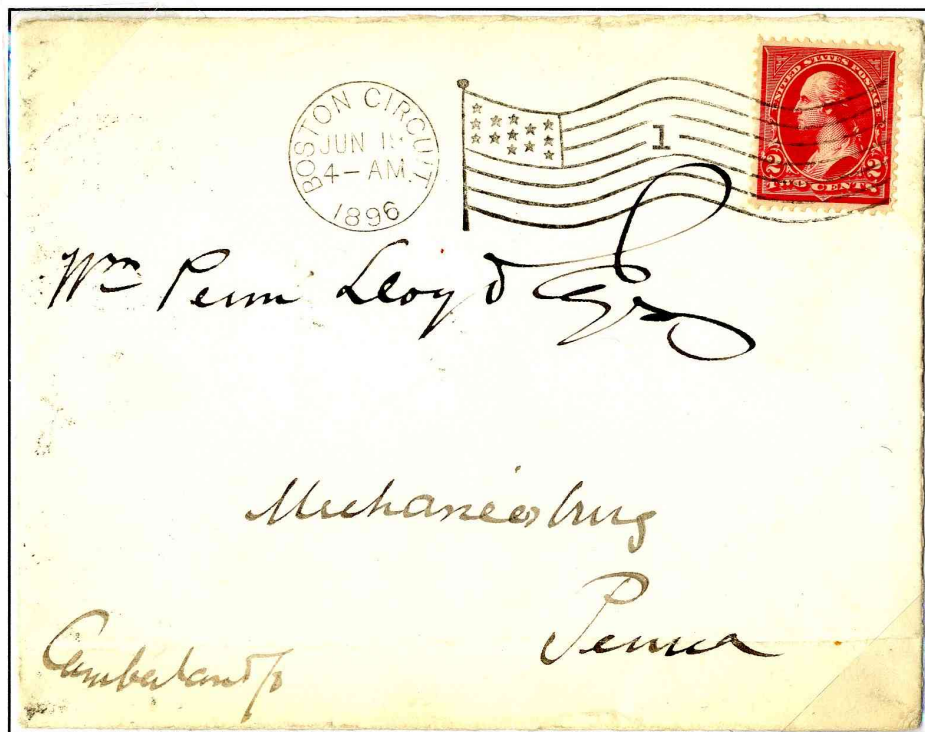 BOSTON CIRCUIT
JUN 1
4- AM.
1896
1
UNITED STATES POSTAGE
2 TWO CENTS 2
Wm Penn Lloyd Esq
Mechanicsburg
Penna
Cumberland Co